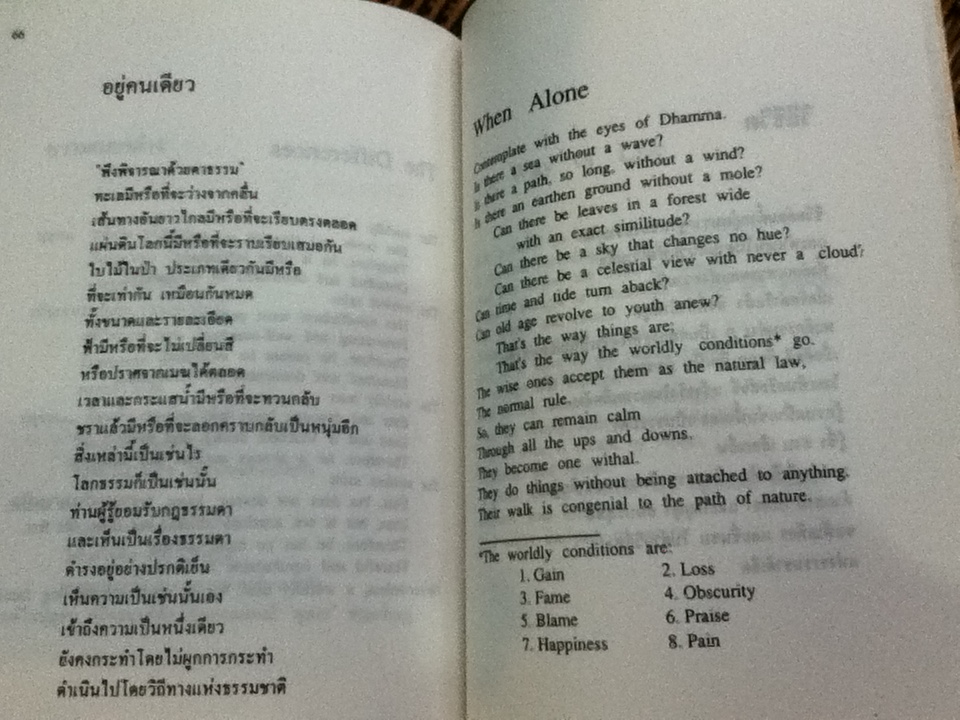 66
อยู่คนเดียว
"พึงพิจารณาด้วยตาธรรม"
ทะเลมีหรือที่จะว่างจากคลื่น
เส้นทางอันยาวไกลมีหรือที่จะเรียบตรงตลอด
แผ่นดินโลกนี้มีหรือที่จะราบเรียบเสมอกัน
ใบไม้ในป่า ประเภทเดียวกันมีหรือ
ที่จะเท่ากัน เหมือนกันหมด
ทั้งขนาดและรายละเอียด
ฟ้ามีหรือที่จะไม่เปลี่ยนสี
หรือปราศจากเมฆได้ตลอด
เวลาและกระแสน้ำมีหรือที่จะทวนกลับ
ชราแล้วมีหรือที่จะลอกคราบกลับเป็นหนุ่มอีก
สิ่งเหล่านี้เป็นเช่นไร
โลกธรรมก็เป็นเช่นนั้น
ท่านผู้รู้ยอมรับกฎธรรมดา
และเห็นเป็นเรื่องธรรมดา
ดำรงอยู่อย่างปรกติเย็น
เห็นความเป็นเช่นนั้นเอง
เข้าถึงความเป็นหนึ่งเดียว
ยังคงกระทำโดยไม่ผูกการกระทำ
ดำเนินไปโดยวิถีทางแห่งธรรมชาติ
When Alone
Contemplate with the eyes of Dhamma.
Is there a sea without a wave?
Is there a path, so long, without a wind?
Is there an earthen ground without a mole?
Can there be leaves in a forest wide
with an exact similitude?
Can there be a sky that changes no hue?
Can there be a celestial view with never a cloud?
Can time and tide turn aback?
Can old age revolve to youth anew?
That's the way things are;
That's the way the worldly conditions* go.
The wise ones accept them as the natural law,
The normal rule.
So, they can remain calm
Through all the ups and downs.
They become one withal.
They do things without being attached to anything.
Their walk is congenial to the path of nature.
*The worldly conditions are:
1. Gain 2. Loss
3. Fame 4. Obscurity
5. Blame 6. Praise
7. Happiness 8. Pain